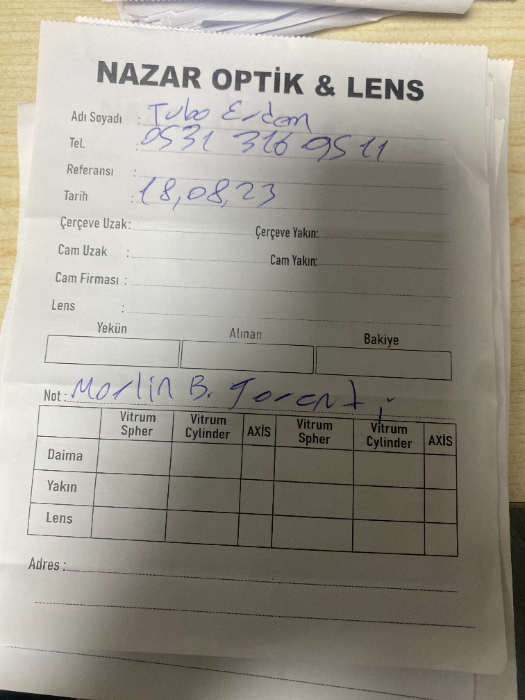 NAZAR OPTİK & LENS
Adı Soyadı : Tuba Erdem
Tel. : 0531 316 9511
Referansı :
Tarih : 18,08,23
Çerçeve Uzak: Çerçeve Yakın:
Cam Uzak : Cam Yakın:
Cam Firması :
Lens :
Yekün Alınan Bakiye
Not : B.
Vitrum Spher Vitrum Cylinder AXİS Vitrum Spher Vitrum Cylinder AXİS
Daima
Yakın
Lens
Adres :